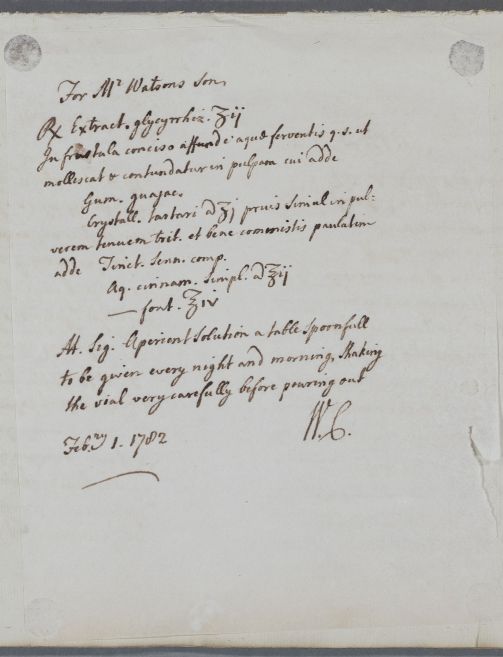 For Mr Watsons Son
℞ Extract. glycyrrhiz. ʒij
In frustula conciso affunde aquæ ferventis q.s. ut
mollescat & contundatur in pulpam cui adde
Gum. guajac.
Crystall. tartari a ʒj prius simul in pul:
verem tenuem trit. et bene commistis paulatim
adde Tinct. senn. comp.
Aq. cinnam. simpl. a ℥ij
— font. ℥iv
At. Sig. Aperient Solution a table spoonfull
to be given every night and morning, shaking
the vial very carefully before pouring out
W. C.
Febry 1. 1782